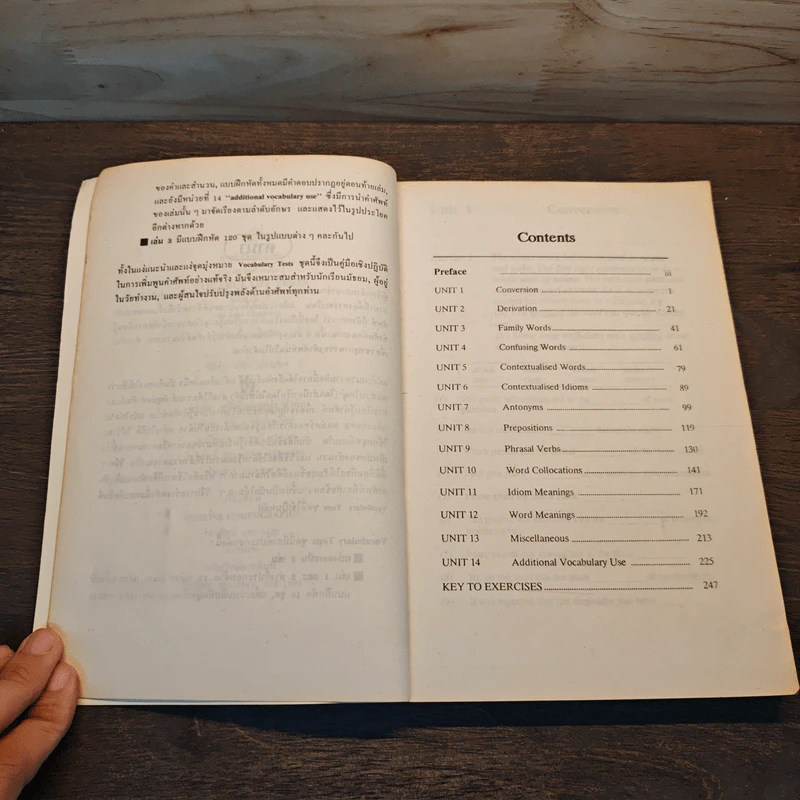 ของคำและสำนวน, แบบฝึกหัดทั้งหมดมีคำตอบปรากฏอยู่ตอนท้ายเล่ม,
และยังมีหน่วยที่ 14 "additional vocabulary use" ซึ่งมีการนำคำศัพท์
ของเล่มนั้น ๆ มาจัดเรียงตามลำดับอักษร และแสดงไว้ในรูปประโยค
อีกต่างหากด้วย
■ เล่ม 3 มีแบบฝึกหัด 120 ชุด ในรูปแบบต่าง ๆ คละกันไป
ทั้งในแง่แนะนำและแง่จุดมุ่งหมาย Vocabulary Tests ชุดนี้จึงเป็นคู่มือเชิงปฏิบัติ
ในการเพิ่มพูนคำศัพท์อย่างแท้จริง มันจึงเหมาะสมสำหรับนักเรียนมัธยม, ผู้อยู่
ในวัยทำงาน, และผู้สนใจปรับปรุงพลังด้านคำศัพท์ทุกท่าน
Contents
Preface iii
UNIT 1 Conversion 1
UNIT 2 Derivation 21
UNIT 3 Family Words 41
UNIT 4 Confusing Words 61
UNIT 5 Contextualised Words 79
UNIT 6 Contextualised Idioms 89
UNIT 7 Antonyms 99
UNIT 8 Prepositions 119
UNIT 9 Phrasal Verbs 130
UNIT 10 Word Collocations 141
UNIT 11 Idiom Meanings 171
UNIT 12 Word Meanings 192
UNIT 13 Miscellaneous 213
UNIT 14 Additional Vocabulary Use 225
KEY TO EXERCISES 247